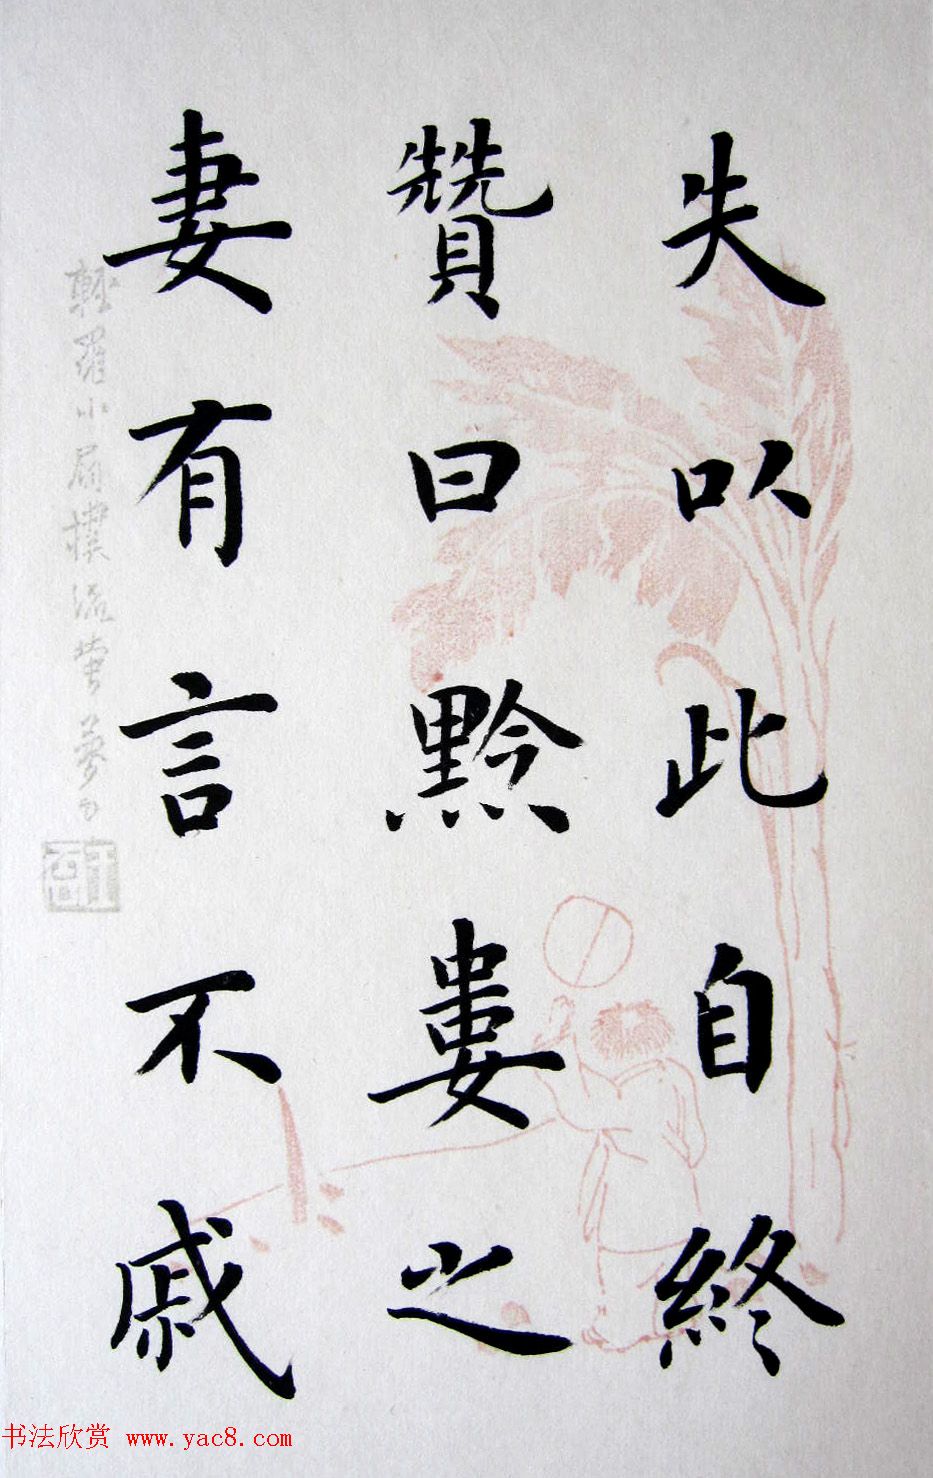 失以此自終
贊曰黔婁之
妻有言不戚
輕羅小扇撲流螢
书法欣赏 www.yac8.com